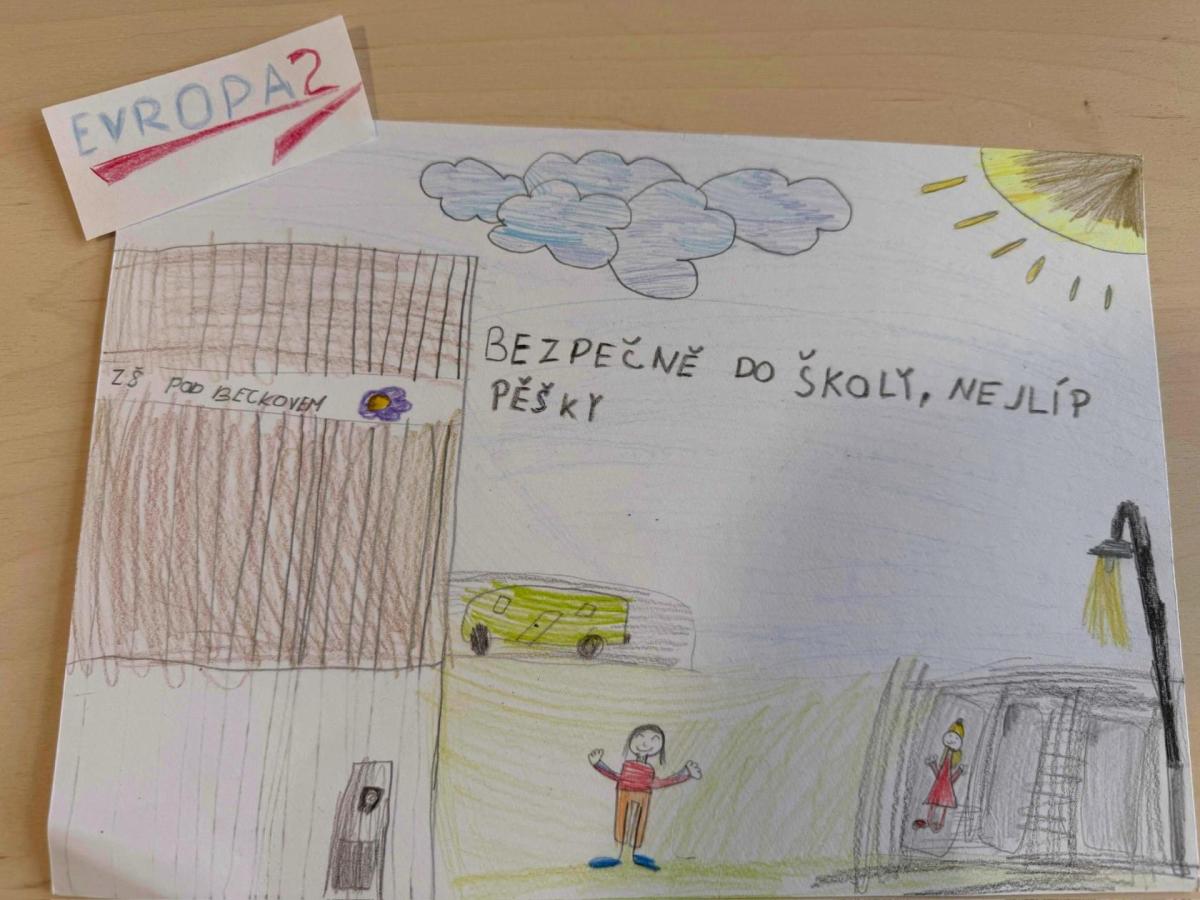 EVROPA2
BEZPEČNĚ DO ŠKOLY, NEJLÍP
PĚŠKY
ZŠ POD BECKOVEM